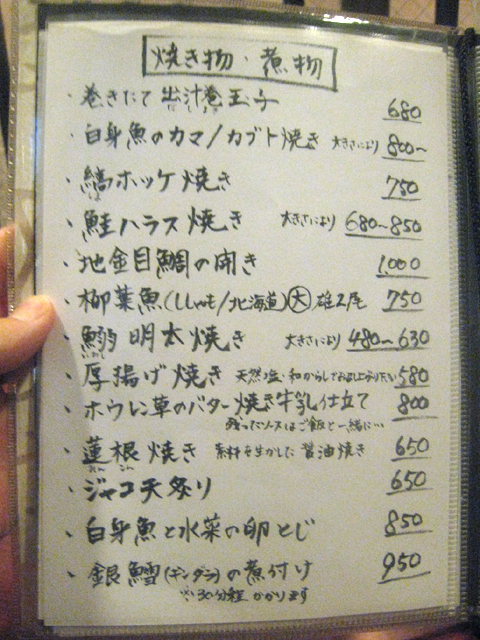 焼き物・煮物
・巻きたて 出汁巻玉子 680
・白身魚のカマ/カブト焼き 大きさにより 800~
・縞ホッケ焼き 750
・鮭ハラス焼き 大きさにより 680~850
・地金目鯛の開き 1,000
・柳葉魚(ししゃも/北海道)大 雄2尾 750
・鰯明太焼き 大きさにより 480~630
・厚揚げ焼き 天然塩・和からしでお召し上がり下さい 580
・ホウレン草のバター焼き牛乳仕立て 800
残ったソースはご飯と一緒に…
・蓮根焼き 素材を生かした醤油焼き 650
・ジャコ天炙り 650
・白身魚と水菜の卵とじ 850
・銀鱈(ギンダラ)の煮付け 950
※30分程かかります